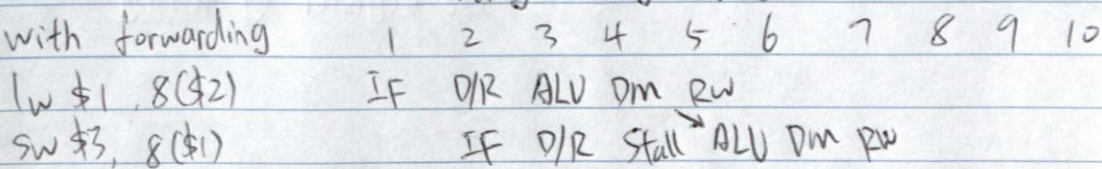 with forwarding 1 2 3 4 5 6 7 8 9 10
lw $1, 8($2) IF D/R ALU DM RW
sw $3, 8($1) IF D/R Stall ALU DM RW